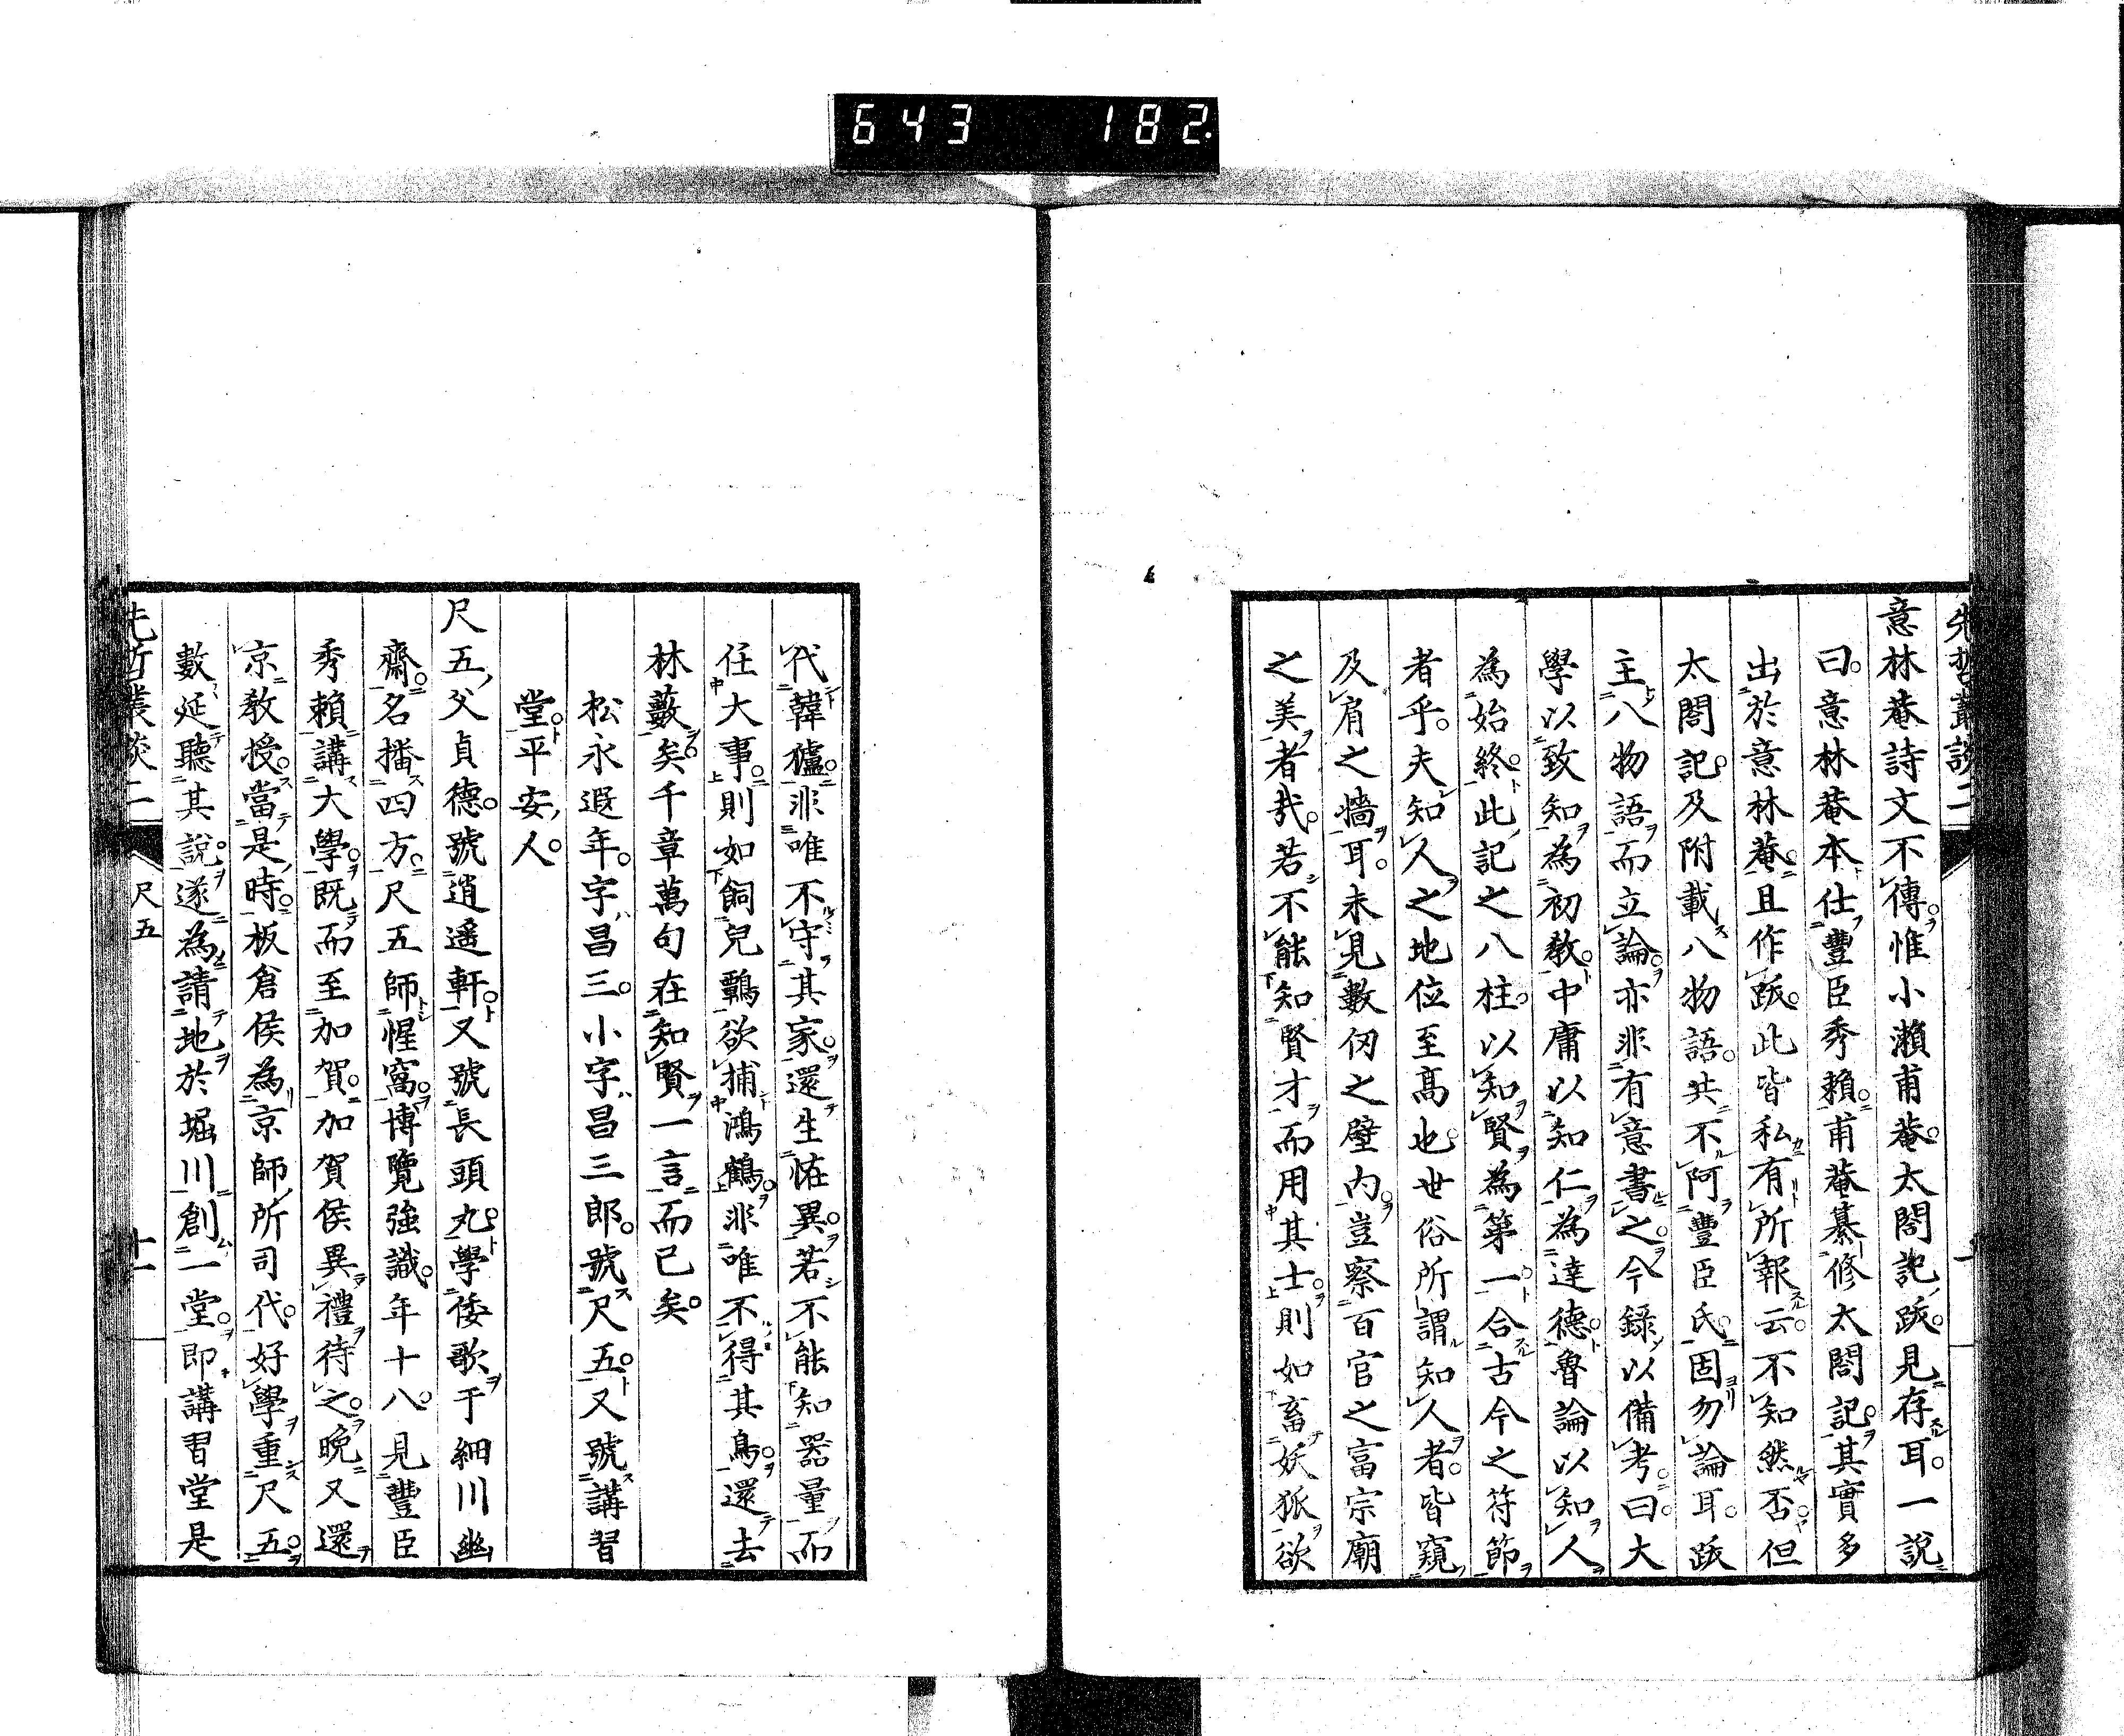 643 182
先哲叢談二
意林菴詩文不傳。惟小瀬甫菴。太閤記跋。見存耳。一說
曰。意林菴本仕豐臣秀賴。甫菴纂修太閤記。其實多
出於意林菴。且作跋。此皆私有所報云。不知然否。但
太閤記。及附載八物語。共不阿豐臣氏。固勿論耳。跋
主八物語而立論。亦非有意書之。今錄以備考。曰。大
學以致知為初教。中庸以知仁為達德。魯論以知人
為始終。此記之八柱。以知賢為第一。合古今之符節
者乎。夫知人之地位至高也。世俗所謂知人者。皆窺
及肩之牆耳。未見數仞之壁內。豈察百官之富宗廟
之美者哉。若不能知賢才而用其士。則如畜妖狐欲
代韓獹。非唯不守其家。還生恠異。若不能知器量而
任大事。則如飼兒鸐欲捕鴻鶴。非唯不得其鳥。還去
林藪矣。千章萬句在知賢一言而已矣。
松永遐年。字昌三。小字昌三郎。號尺五。又號講習
堂。平安人。
尺五父貞德。號逍遙軒。又號長頭丸。學倭歌于細川幽
齋。名播四方。尺五師惺窩。博覽強識。年十八。見豐臣
秀賴講大學。既而至加賀。加賀侯異禮待之。晚又還
京教授。當是時。板倉侯為京師所司代。好學重尺五。
數延聽其說。遂為請地於堀川創一堂。即講習堂是
先哲叢談二
尺五
十一